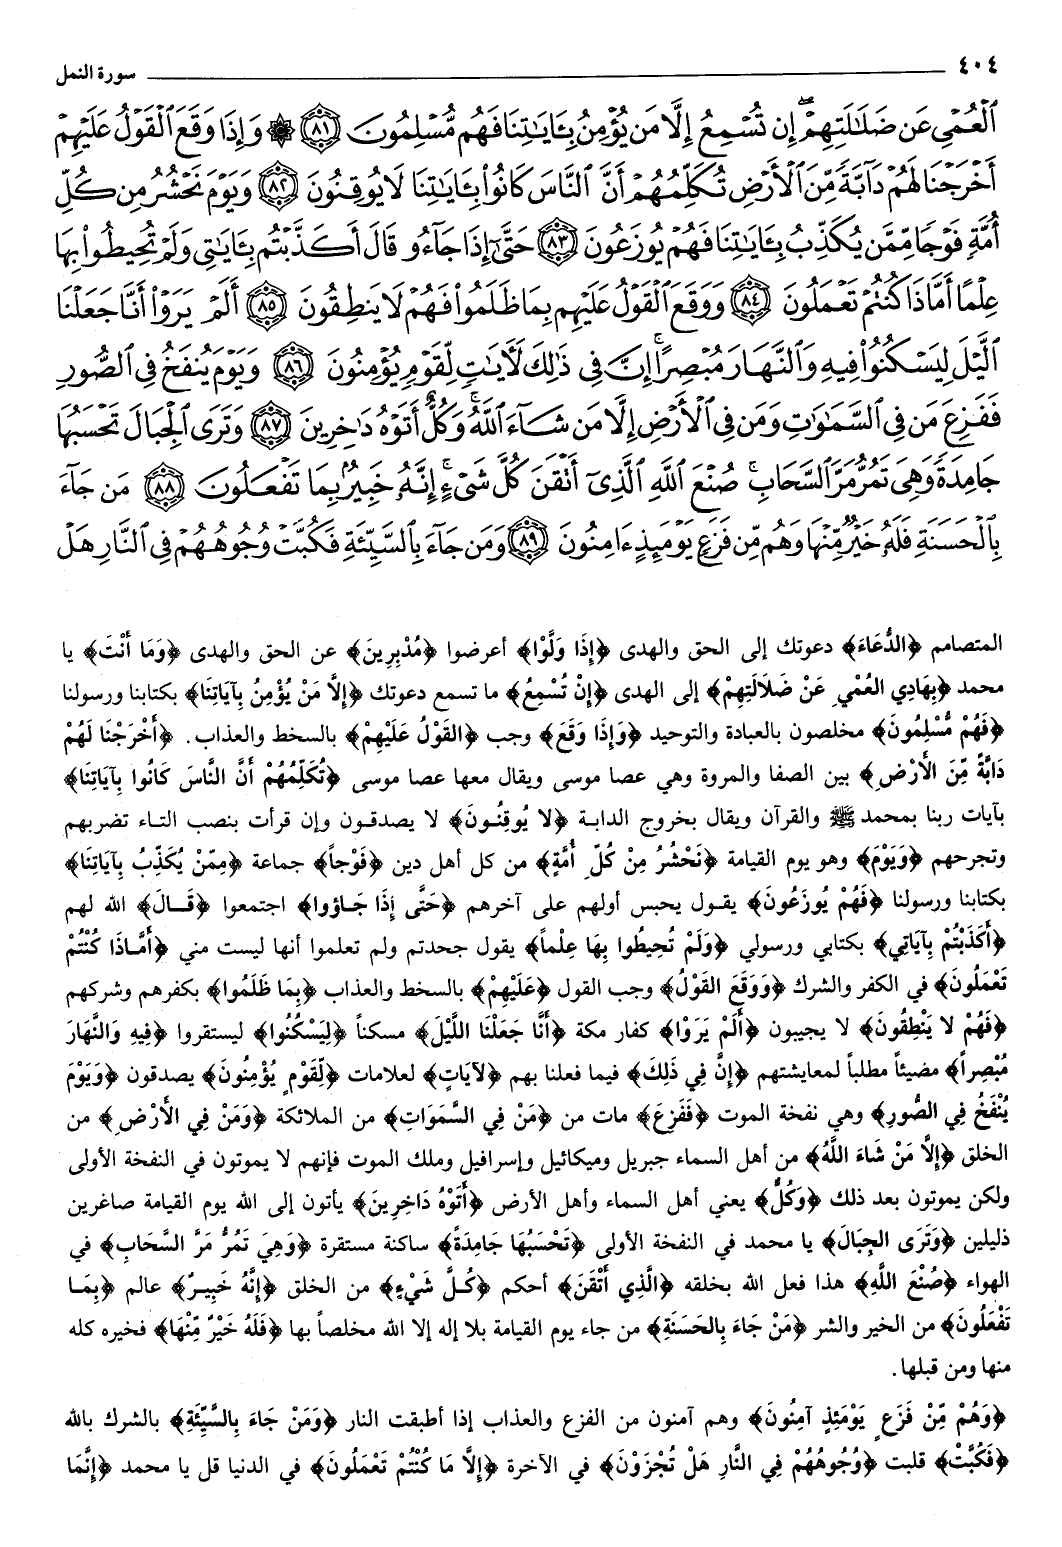 ٤٠٤ سورة النمل
ٱلۡعُمۡيِ عَن ضَلَٰلَتِهِمۡۖ إِن تُسۡمِعُ إِلَّا مَن يُؤۡمِنُ بِـَٔايَٰتِنَا فَهُم مُّسۡلِمُونَ ٨١ ۞ وَإِذَا وَقَعَ ٱلۡقَوۡلُ عَلَيۡهِمۡ
أَخۡرَجۡنَا لَهُمۡ دَآبَّةً مِّنَ ٱلۡأَرۡضِ تُكَلِّمُهُمۡ أَنَّ ٱلنَّاسَ كَانُواْ بِـَٔايَٰتِنَا لَا يُوقِنُونَ ٨٢ وَيَوۡمَ نَحۡشُرُ مِن كُلِّ
أُمَّةٍ فَوۡجًا مِّمَّن يُكَذِّبُ بِـَٔايَٰتِنَا فَهُمۡ يُوزَعُونَ ٨٣ حَتَّىٰٓ إِذَا جَآءُو قَالَ أَكَذَّبۡتُم بِـَٔايَٰتِي وَلَمۡ تُحِيطُواْ بِهَا
عِلۡمًا أَمَّاذَا كُنتُمۡ تَعۡمَلُونَ ٨٤ وَوَقَعَ ٱلۡقَوۡلُ عَلَيۡهِم بِمَا ظَلَمُواْ فَهُمۡ لَا يَنطِقُونَ ٨٥ أَلَمۡ يَرَوۡاْ أَنَّا جَعَلۡنَا
ٱلَّيۡلَ لِيَسۡكُنُواْ فِيهِ وَٱلنَّهَارَ مُبۡصِرًاۚ إِنَّ فِي ذَٰلِكَ لَأٓيَٰتٍ لِّقَوۡمٍ يُؤۡمِنُونَ ٨٦ وَيَوۡمَ يُنفَخُ فِي ٱلصُّورِ
فَفَزِعَ مَن فِي ٱلسَّمَٰوَٰتِ وَمَن فِي ٱلۡأَرۡضِ إِلَّا مَن شَآءَ ٱللَّهُۚ وَكُلٌّ أَتَوۡهُ دَٰخِرِينَ ٨٧ وَتَرَى ٱلۡجِبَالَ تَحۡسَبُهَا
جَامِدَةً وَهِيَ تَمُرُّ مَرَّ ٱلسَّحَابِۚ صُنۡعَ ٱللَّهِ ٱلَّذِيٓ أَتۡقَنَ كُلَّ شَيۡءٍۚ إِنَّهُۥ خَبِيرُۢ بِمَا تَفۡعَلُونَ ٨٨ مَن جَآءَ
بِٱلۡحَسَنَةِ فَلَهُۥ خَيۡرٌ مِّنۡهَا وَهُم مِّن فَزَعٍ يَوۡمَئِذٍ ءَامِنُونَ ٨٩ وَمَن جَآءَ بِٱلسَّيِّئَةِ فَكُبَّتۡ وُجُوهُهُمۡ فِي ٱلنَّارِ هَلۡ
المتصامم ﴿الدُّعَاءَ﴾ دعوتك إلى الحق والهدى ﴿إِذَا وَلَّوْا﴾ أعرضوا ﴿مُدْبِرِينَ﴾ عن الحق والهدى ﴿وَمَا أَنْتَ﴾ يا
محمد ﴿بِهَادِي العُمْيِ عَنْ ضَلَالَتِهِمْ﴾ إلى الهدى ﴿إِنْ تُسْمِعُ﴾ ما تسمع دعوتك ﴿إِلَّا مَنْ يُؤْمِنُ بِآيَاتِنَا﴾ بكتابنا ورسولنا
﴿فَهُمْ مُّسْلِمُونَ﴾ مخلصون بالعبادة والتوحيد ﴿وَإِذَا وَقَعَ﴾ وجب ﴿القَوْلُ عَلَيْهِمْ﴾ بالسخط والعذاب. ﴿أَخْرَجْنَا لَهُمْ
دَابَّةً مِّنَ الأَرْضِ﴾ بين الصفا والمروة وهي عصا موسى ويقال معها عصا موسى ﴿تُكَلِّمُهُمْ أَنَّ النَّاسَ كَانُوا بِآيَاتِنَا﴾
بآيات ربنا بمحمد ﷺ والقرآن ويقال بخروج الدابة ﴿لَا يُوقِنُونَ﴾ لا يصدقون وإن قرأت بنصب التاء تضربهم
وتجرحهم ﴿وَيَوْمَ﴾ وهو يوم القيامة ﴿نَحْشُرُ مِنْ كُلِّ أُمَّةٍ﴾ من كل أهل دين ﴿فَوْجاً﴾ جماعة ﴿مِمَّنْ يُكَذِّبُ بِآيَاتِنَا﴾
بكتابنا ورسولنا ﴿فَهُمْ يُوزَعُونَ﴾ يقول يحبس أولهم على آخرهم ﴿حَتَّى إِذَا جَاؤُوا﴾ اجتمعوا ﴿قَالَ﴾ الله لهم
﴿أَكَذَبْتُمْ بِآيَاتِي﴾ بكتابي ورسولي ﴿وَلَمْ تُحِيطُوا بِهَا عِلْماً﴾ يقول جحدتم ولم تعلموا أنها ليست مني ﴿أَمَّاذَا كُنْتُمْ
تَعْمَلُونَ﴾ في الكفر والشرك ﴿وَوَقَعَ القَوْلُ﴾ وجب القول ﴿عَلَيْهِمْ﴾ بالسخط والعذاب ﴿بِمَا ظَلَمُوا﴾ بكفرهم وشركهم
﴿فَهُمْ لَا يَنْطِقُونَ﴾ لا يجيبون ﴿أَلَمْ يَرَوْا﴾ كفار مكة ﴿أَنَّا جَعَلْنَا اللَّيْلَ﴾ مسكناً ﴿لِيَسْكُنُوا﴾ ليستقروا ﴿فِيهِ وَالنَّهَارَ
مُبْصِراً﴾ مضيئاً مطلباً لمعايشتهم ﴿إِنَّ فِي ذَلِكَ﴾ فيما فعلنا بهم ﴿لَآيَاتٍ﴾ لعلامات ﴿لِّقَوْمٍ يُؤْمِنُونَ﴾ يصدقون ﴿وَيَوْمَ
يُنْفَخُ فِي الصُّورِ﴾ وهي نفخة الموت ﴿فَفَزِعَ﴾ مات من ﴿مَنْ فِي السَّمَوَاتِ﴾ من الملائكة ﴿وَمَنْ فِي الأَرْضِ﴾ من
الخلق ﴿إِلَّا مَنْ شَاءَ اللَّهُ﴾ من أهل السماء جبريل وميكائيل وإسرافيل وملك الموت فإنهم لا يموتون في النفخة الأولى
ولكن يموتون بعد ذلك ﴿وَكُلٌّ﴾ يعني أهل السماء وأهل الأرض ﴿أَتَوْهُ دَاخِرِينَ﴾ يأتون إلى الله يوم القيامة صاغرين
ذليلين ﴿وَتَرَى الجِبَالَ﴾ يا محمد في النفخة الأولى ﴿تَحْسَبُهَا جَامِدَةً﴾ ساكنة مستقرة ﴿وَهِيَ تَمُرُّ مَرَّ السَّحَابِ﴾ في
الهواء ﴿صُنْعَ اللَّهِ﴾ هذا فعل الله بخلقه ﴿الَّذِي أَتْقَنَ﴾ أحكم ﴿كُلَّ شَيْءٍ﴾ من الخلق ﴿إِنَّهُ خَبِيرٌ﴾ عالم ﴿بِمَا
تَفْعَلُونَ﴾ من الخير والشر ﴿مَنْ جَاءَ بِالحَسَنَةِ﴾ من جاء يوم القيامة بلا إله إلا الله مخلصاً بها ﴿فَلَهُ خَيْرٌ مِّنْهَا﴾ فخيره كله
منها ومن قبلها.
﴿وَهُمْ مِّنْ فَزَعٍ يَوْمَئِذٍ آمِنُونَ﴾ وهم آمنون من الفزع والعذاب إذا أطبقت النار ﴿وَمَنْ جَاءَ بِالسَّيِّئَةِ﴾ بالشرك بالله
﴿فَكُبَّتْ﴾ قلبت ﴿وُجُوهُهُمْ فِي النَّارِ هَلْ تُجْزَوْنَ﴾ في الآخرة ﴿إِلَّا مَا كُنْتُمْ تَعْمَلُونَ﴾ في الدنيا قل يا محمد ﴿إِنَّمَا